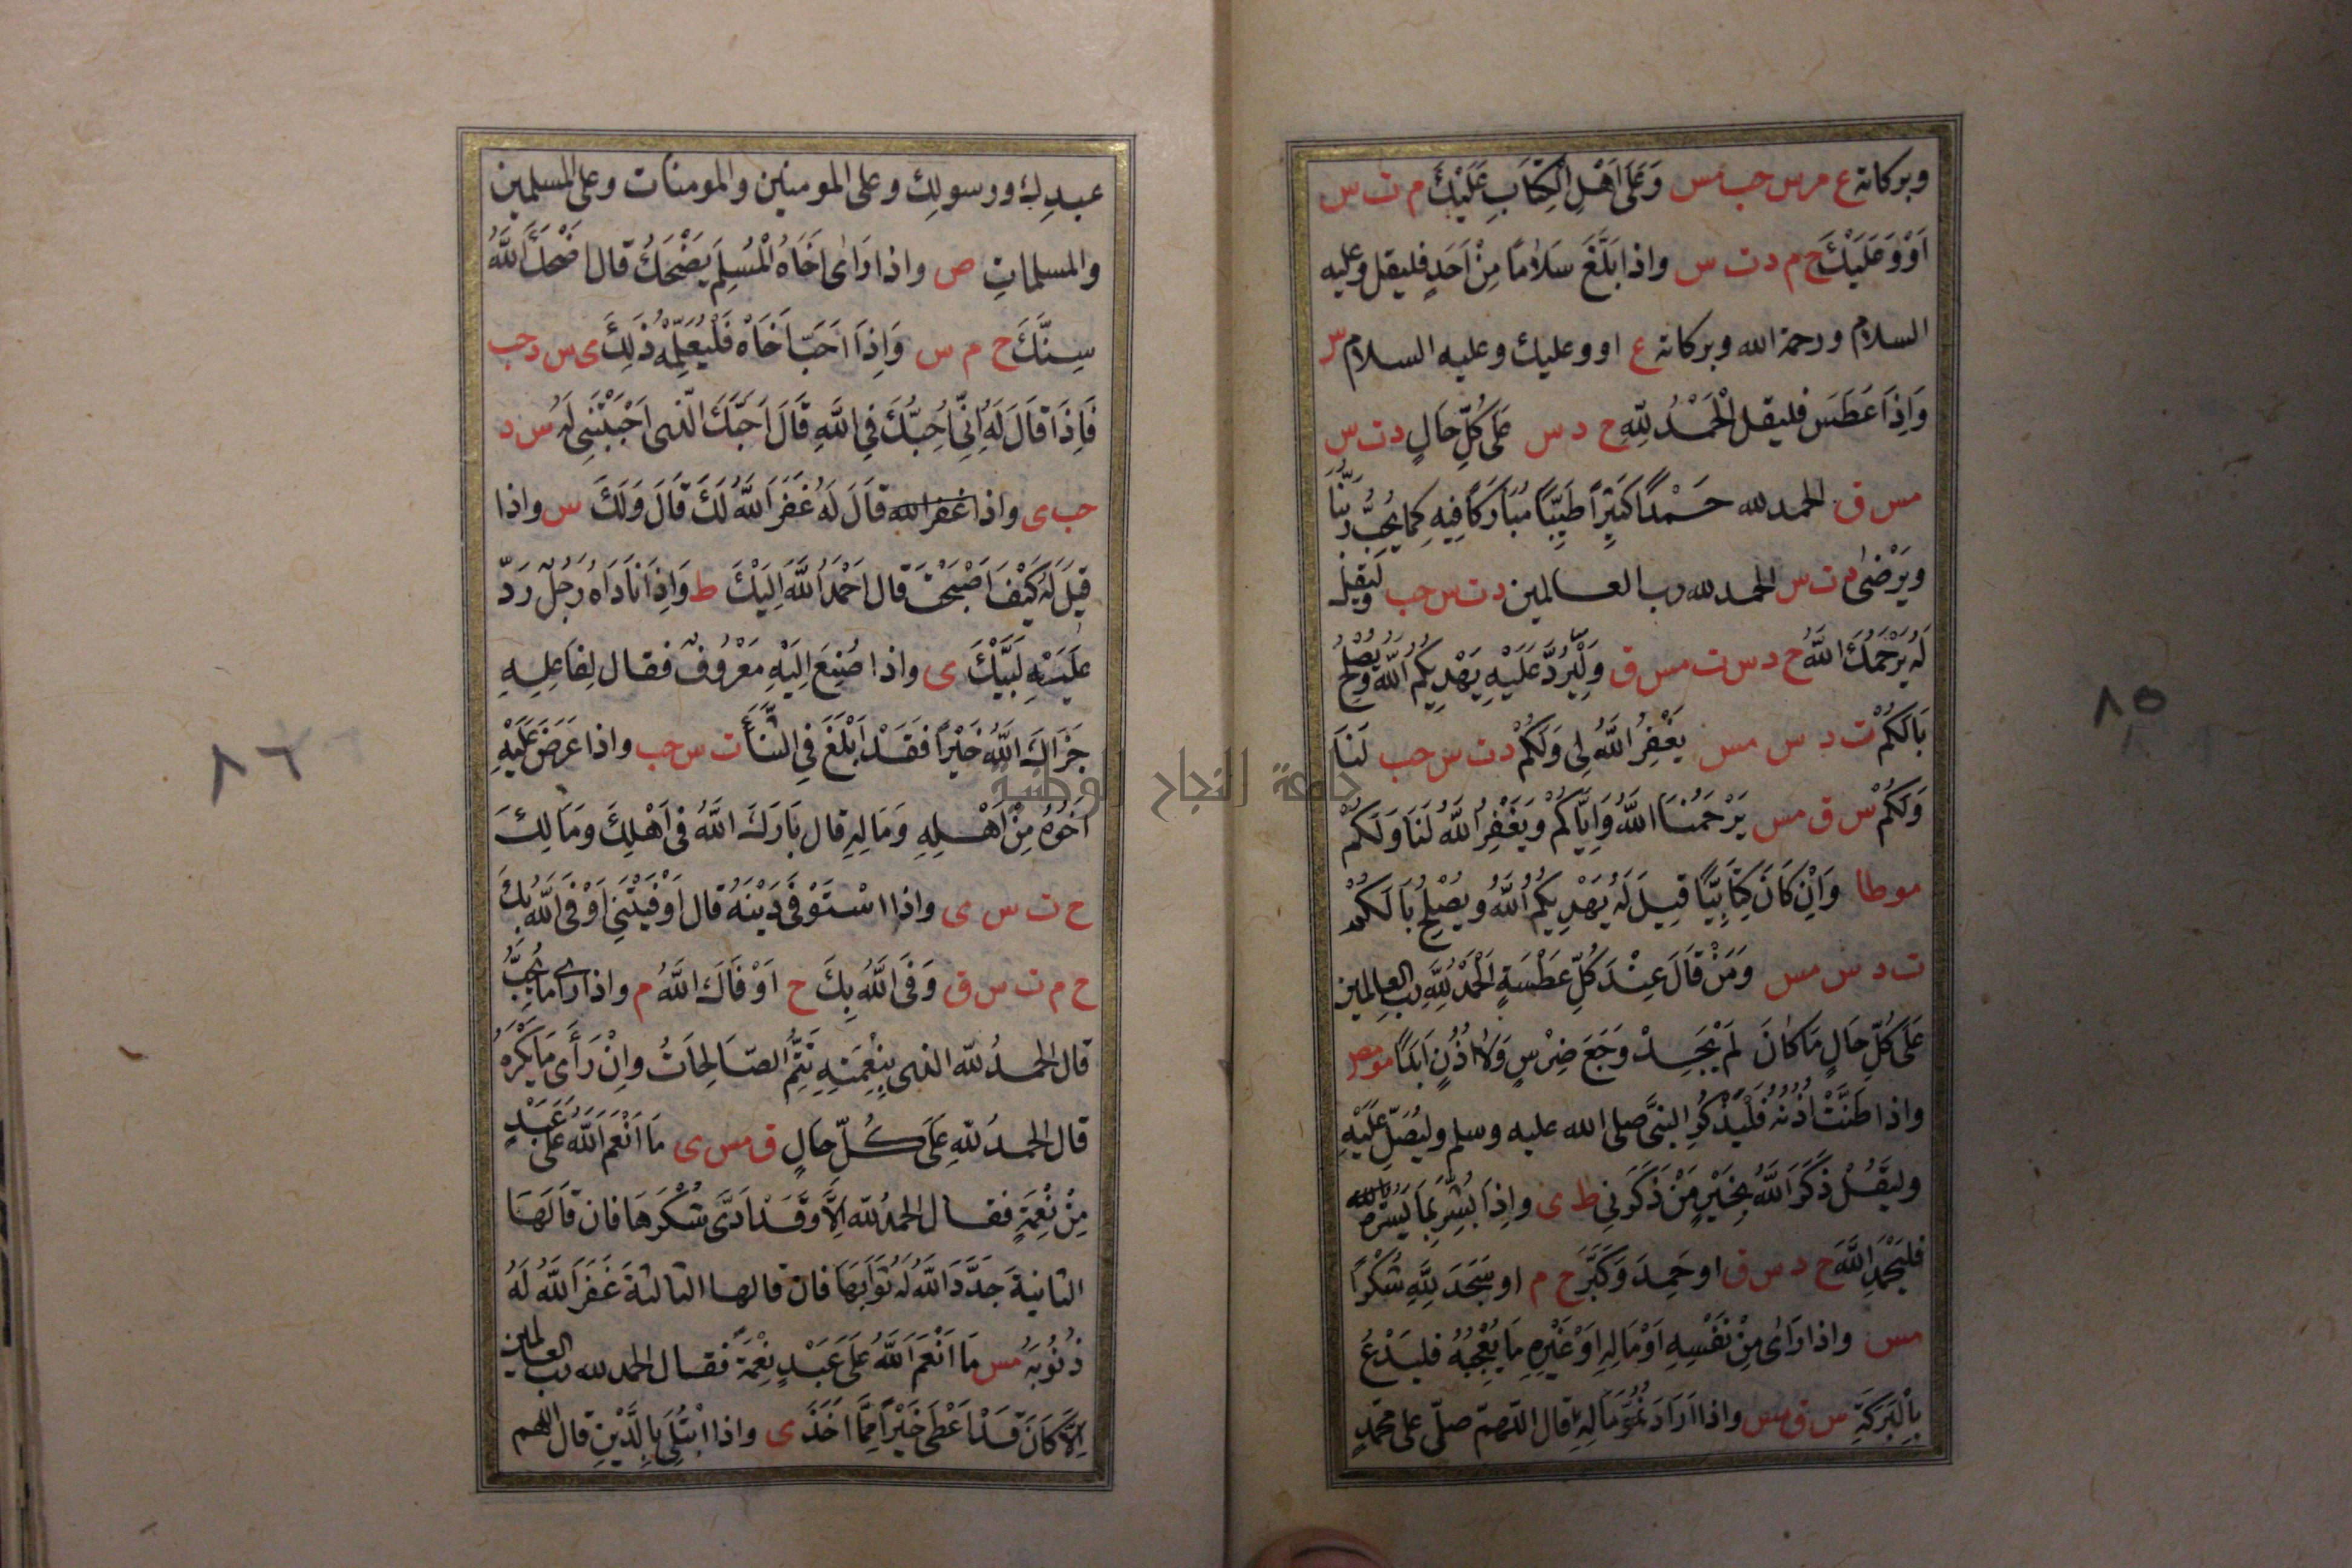 وبركاته ع م س حب مس وَعَلَى اَهْلِ الْكِتَابِ عَلَيْكَ م ت س
اَوْ وَعَلَيْكَ خ م د ت س واذا بَلَّغَ سَلَامًا مِنْ اَحَدٍ فليقل وعليه
السلام ورحمة الله وبركاته ع او وعليك وعليه السلام س
وَاِذَا عَطَسَ فليقل الْحَمْدُ لِلّٰهِ خ د س عَلَى كُلِّ حَالٍ د ت س
مس ق الحمد لله حَمْدًا كَثِيْرًا طَيِّبًا مُبَارَكًا فِيْهِ كَمَا يُحِبُّ رَبُّنَا
ويَرْضٰى د ت س الحمد لله رب العالمين د ت س حب وَلْيَقُلْ
لَهُ يَرْحَمُكَ اللّٰهُ خ د س ت مس ق وَلْيَرُدَّ عَلَيْهِ يَهْدِيكُمُ اللّٰهُ وَيُصْلِحُ
بَالَكُمْ ت د س مس يَغْفِرُ اللّٰهُ لِى وَلَكُمْ د ت س حب لَنَا
وَلَكُمْ س ق مس يَرْحَمُنَا اللّٰهُ وَاِيَّاكُمْ وَيَغْفِرُ اللّٰهُ لَنَا وَلَكُمْ
موطا وَاِنْ كَانَ كِتَابِيًّا قِيلَ لَهُ يَهْدِيكُمُ اللّٰهُ ويُصْلِحُ بَالَكُمْ
ت د س مس وَمَنْ قَالَ عِنْدَ كُلِّ عَطْسَةٍ اَلْحَمْدُ لِلّٰهِ رب العالمين
عَلَى كُلِّ حَالٍ مَا كَانَ لَمْ يَجِدْ وَجَعَ ضِرْسٍ وَلَا اُذُنٍ اَبَدًا مو مص
واذا طَنَّتْ اُذُنُهُ فَلْيَذْكُرِ النبىَّ صلى الله عليه وسلم وليُصَلِّ عَلَيْهِ
وليَقُلْ ذَكَرَ اللّٰهُ بِخَيْرٍ مَنْ ذَكَرَنِى ط ى واِذَا بُشِّرَ بِمَا يَسُرُّهُ
فليَحْمَدِ اللّٰهَ خ د س ق او حَمِدَ وَكَبَّرَ خ م او سَجَدَ لِلّٰهِ شُكْرًا
مس واذا رَاٰى مِنْ نَفْسِهِ اَوْ مَالِهِ اَوْ غَيْرِهِ مَا يُعْجِبُهُ فليَدْعُ
بِالْبَرَكَةِ س ق مس واذا اَرَادَ نُمُوَّ مَالِهِ قال اللّهمّ صلّى على محمّدٍ
٨٥
عبدِك ورسولِك وعلى المومنين والمومنات وعلى المسلمين
والمسلماتِ ص واذا رَاٰى اَخَاهُ الْمُسْلِمَ يَضْحَكُ قال اَضْحَكَ اللّٰهُ
سِنَّكَ خ م س وَاِذَا اَحَبَّ اَخَاهُ فَلْيُعْلِمْهُ ذٰلِكَ ى س د حب
فَاِذَا قَالَ لَهُ اِنِّى اُحِبُّكَ فِى اللّٰهِ قَالَ اَحَبَّكَ الَّذِى اَحْبَبْتَنِى لَهُ س د
حب ى واذا غفر الله قَالَ لَهُ غَفَرَ اللّٰهُ لَكَ قَالَ وَلَكَ س واذا
قِيلَ لَهُ كَيْفَ اَصْبَحْتَ قال اَحْمَدُ اللّٰهَ اِلَيْكَ ط وَاِذَا نَادَاهُ رَجُلٌ رَدَّ
عَلَيْهِ لَبَّيْكَ ى واذا صُنِعَ اِلَيْهِ مَعْرُوفٌ فقال لِفَاعِلِهِ
جَزَاكَ اللّٰهُ خَيْرًا فَقَدْ اَبْلَغَ فِى الثَّنَاءِ ت س حب واذا عَرَضَ عَلَيْهِ
اَخُوهُ مِنْ اَهْلِهِ وَمَالِهِ قال بَارَكَ اللّٰهُ فى اَهْلِكَ ومَالِكَ
خ ت س ى واذا اسْتَوْفَى دَيْنَهُ قال اَوْفَيْتَنِى اَوْفَى اللّٰهُ بِكَ
خ م ت س ق وَفَى اللّٰهُ بِكَ خ اَوْفَاكَ اللّٰهُ م واذا راى ما يُحِبُّ
قال الحمدُ لله الذى بِنِعْمَتِهِ تَتِمُّ الصّالِحَاتُ واِنْ رَأَى مَا يَكْرَهُ
قال الحمدُ للهِ عَلَى كُلِّ حَالٍ ق مس ى مَا اَنْعَمَ اللّٰهُ عَلَى عَبْدٍ
مِنْ نِعْمَةٍ فقال الحمدُ لله اِلَّا وَقَدْ اَدَّى شُكْرَهَا فان قَالَهَا
الثانيةَ جَدَّدَ اللّٰهُ لَهُ ثَوَابَهَا فان قالها الثالثةَ غَفَرَ اللّٰهُ لَهُ
ذُنُوبَهُ مس مَا اَنْعَمَ اللّٰهُ عَلَى عَبْدٍ نِعْمَةً فقال الحمد لله رب العالمين
اِلَّا كَانَ قَدْ اَعْطَى خَيْرًا مِمَّا اَخَذَ ى واذا ابْتُلِىَ بِالدَّيْنِ قال اللهم
٨٦
جامعة النجاح الوطنية